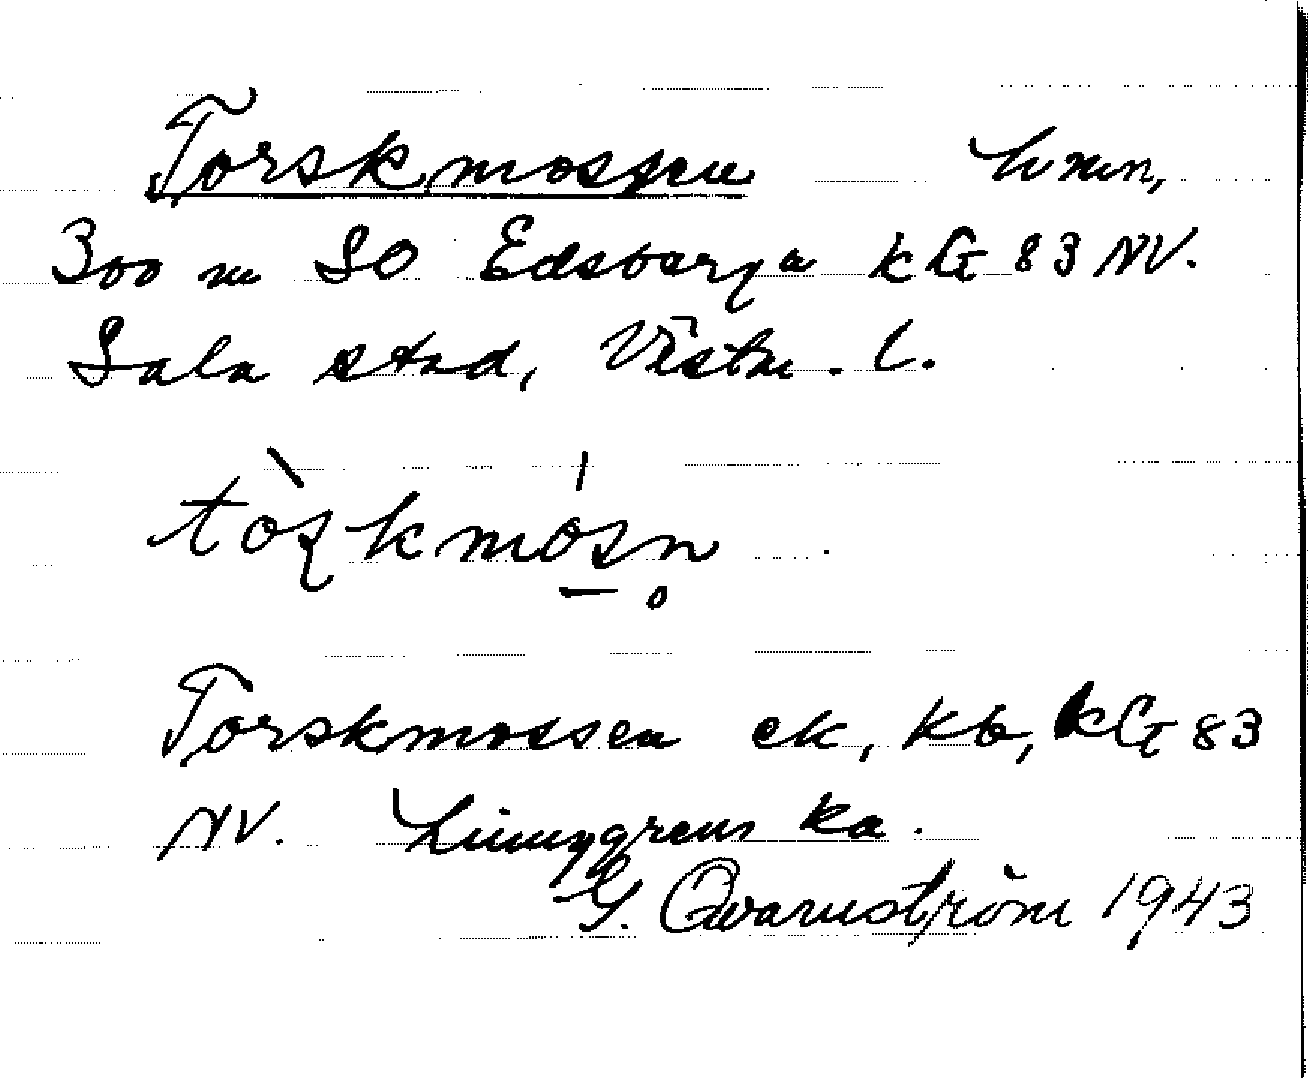 Torskmossen
300 m SO Edsberga kG 83 NV.
Sala stad, Västm. l.
tòʂkmósn̥
Torskmossen ek, kb, kG 83
NV. ka.
G. Qvarnström 1943